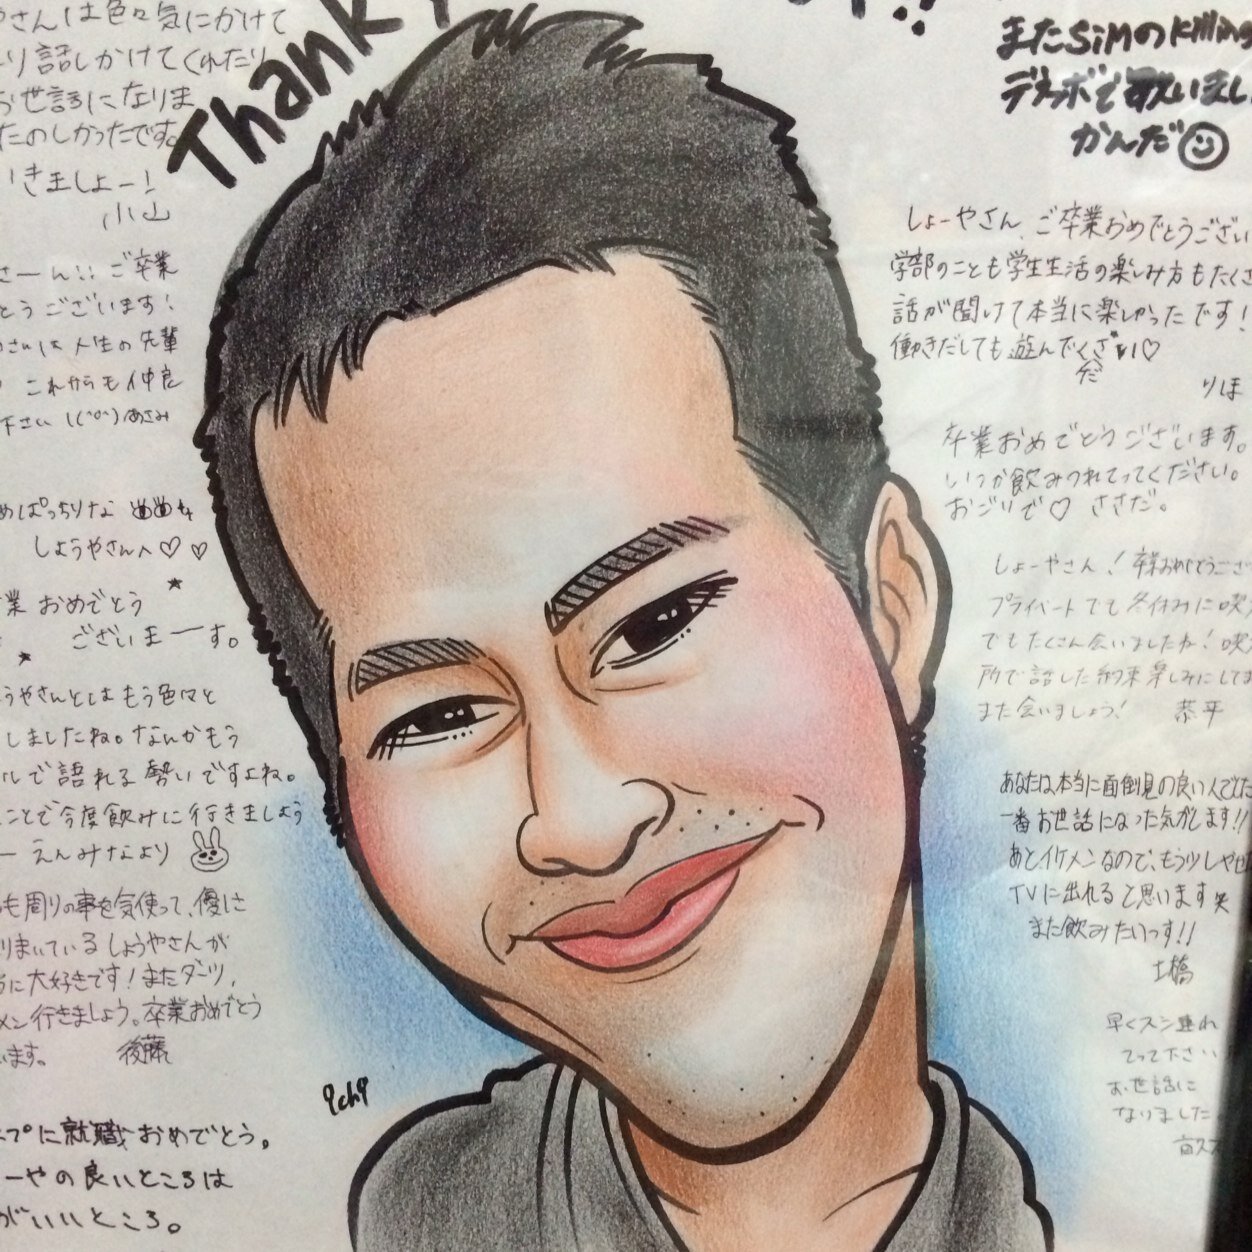 Thank
さんは色々気にかけて
り話しかけてくれたり
お世話になりま
たのしかったです。
いきましょー!
小山
さーん!! ご卒業
とうございます!
さんは人生の先輩
これからも仲良
下さい あさみ
めぱっちりな
しょうやさんへ♡♡
業おめでとう
ございまーす。
うやさんとはもう色々と
しましたね。なんかもう
ルで語れる勢いですよね。
ことで今度飲みに行きましょう
ー えんみなより
も周りの事を気使って、優しさ
りまいているしょうやさんが
に大好きです!またダーツ、
メン行きましょう。卒業おめでとう
います。 後藤
プに就職おめでとう。
ーやの良いところは
がいいところ。
ichi
またSiMのKilling
デスボで歌いまし
かんだ
しょーやさん、ご卒業おめでとうござい
学部のことも学生生活の楽しみ方もたくさ
話が聞けて本当に楽しかったです!
働きだしても遊んでくださいい♡
りほ
卒業おめでとうございます。
いつか飲みつれてってください。
おごりで♡ ささだ。
しょーやさん!卒業おめでとうござ
プライベートでも冬休みに喫
でもたくさん会いましたね!喫
所で話した約束楽しみにしてま
また会いましょう! 恭平
あなたは本当に面倒見の良い人でした
一番お世話になった気がします!!
あとイケメンなので、もう少しやせ
TVに出れると思います笑
また飲みたいっす!!
土橋
早くスシ連れ
てって下さい
お世話に
なりました